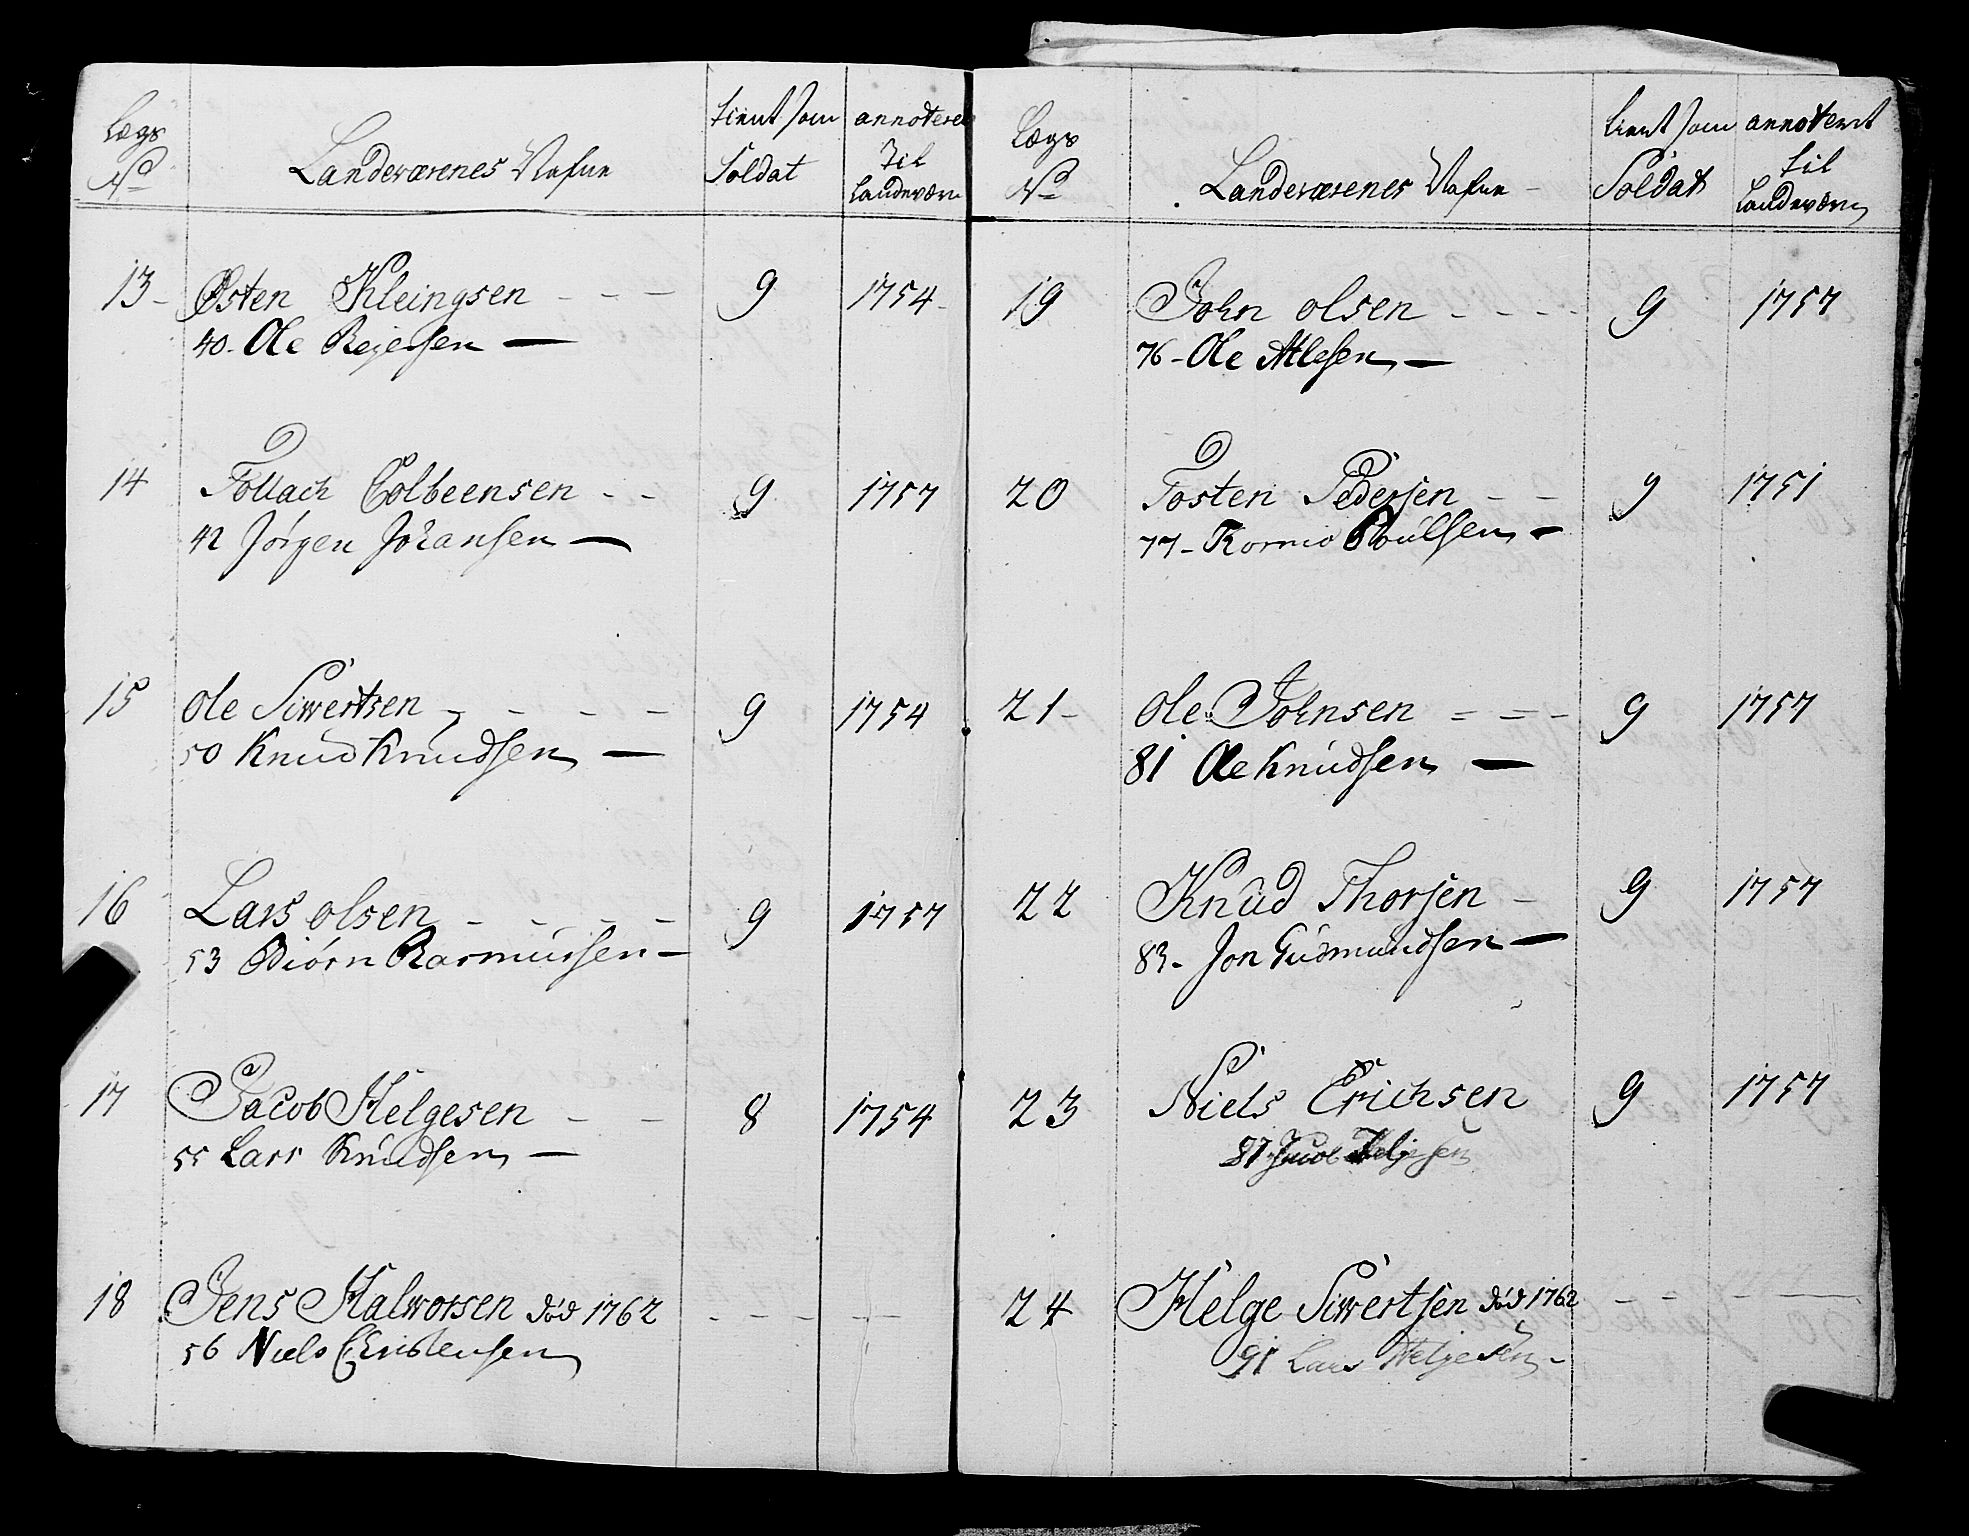 Lægs No Landeværenes Nafne tient som Soldat annoteret til Landeværn
13 - Østen Kleingsen - - - 9 1754 -
40 - Ole Rejersen —
14 Tollach Colbeensen - - 9 1757
42 Jörgen Johansen —
15 Ole Siwertsen - - - - 9 1754
50 Knud Knudsen —
16 Lars olsen - - - - 9 1757
53 Biörn Rasmussen —
17 Jacob Helgesen - - 8 1754
55 Lars Knudsen —
18 Jens Halworsen död 1762 - - - - -
56 Niels Christensen
Lægs No Landeværenes Nafne - tient som Soldat annoteret til Landeværn
19 John olsen - - - - 9 1757
76 - Ole Atlesen —
20 Tosten Pedersen - - 9 1751
77 - Poulsen —
21 - Ole Johnsen = = - 9 1757
81 Ole Knudsen —
22 Knud Thorsen - 9 1757
83 - Jon Gudmundsen —
23 Niels Erichsen 9 1757
87 Jacob Heljesen
24 Helge Siwertsen död 1762 - - - —
91 Lars Heljesen -